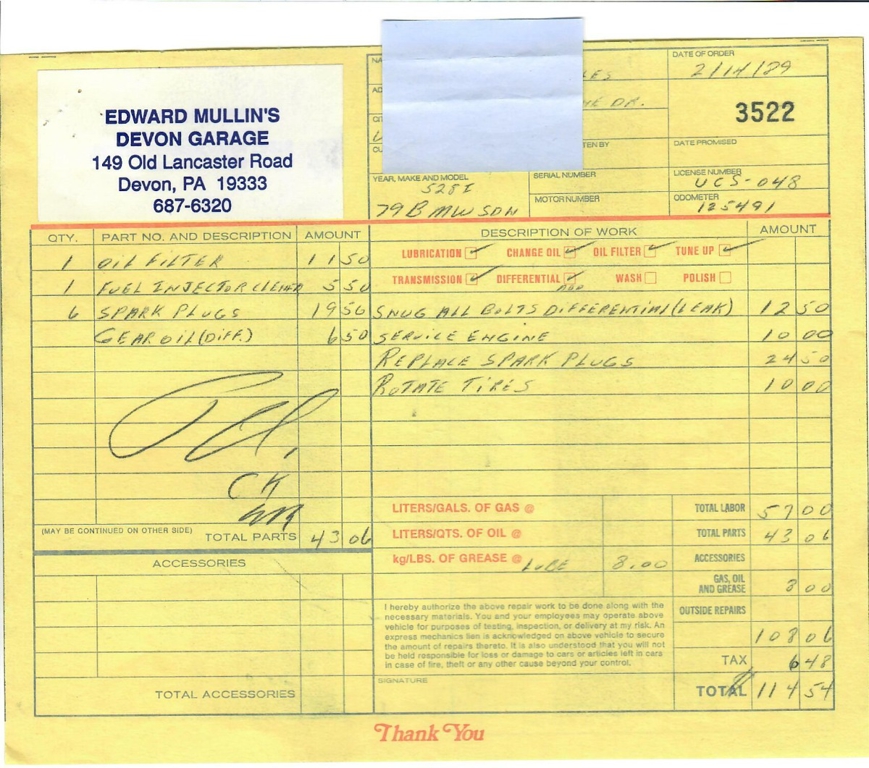 EDWARD MULLIN'S
DEVON GARAGE
149 Old Lancaster Road
Devon, PA 19333
687-6320
DATE OF ORDER
2/14/89
DR.
3522
DATE PROMISED
YEAR, MAKE AND MODEL
528I
79 BMW SDN
SERIAL NUMBER
MOTOR NUMBER
LICENSE NUMBER
UCS-048
ODOMETER
125491
QTY. PART NO. AND DESCRIPTION AMOUNT
1 OIL FILTER 11 50
1 FUEL INJECTOR CLEANER 5 50
6 SPARK PLUGS 19 56
GEAR OIL (DIFF.) 6 50
CK
(MAY BE CONTINUED ON OTHER SIDE) TOTAL PARTS 43 06
ACCESSORIES
TOTAL ACCESSORIES
DESCRIPTION OF WORK AMOUNT
LUBRICATION CHANGE OIL OIL FILTER TUNE UP
TRANSMISSION DIFFERENTIAL WASH POLISH
ADD
SNUG ALL BOLTS DIFFERENTIAL (LEAK) 12 50
SERVICE ENGINE 10 00
REPLACE SPARK PLUGS 24 50
ROTATE TIRES 10 00
LITERS/GALS. OF GAS @
LITERS/QTS. OF OIL @
kg/LBS. OF GREASE @ LUBE 8.00
TOTAL LABOR 57 00
TOTAL PARTS 43 06
ACCESSORIES
GAS, OIL
AND GREASE 8 00
OUTSIDE REPAIRS
108 06
TAX 6 48
TOTAL 114 54
I hereby authorize the above repair work to be done along with the
necessary materials. You and your employees may operate above
vehicle for purposes of testing, inspection, or delivery at my risk. An
express mechanics lien is acknowledged on above vehicle to secure
the amount of repairs thereto. It is also understood that you will not
be held responsible for loss or damage to cars or articles left in cars
in case of fire, theft or any other cause beyond your control.
SIGNATURE
Thank You